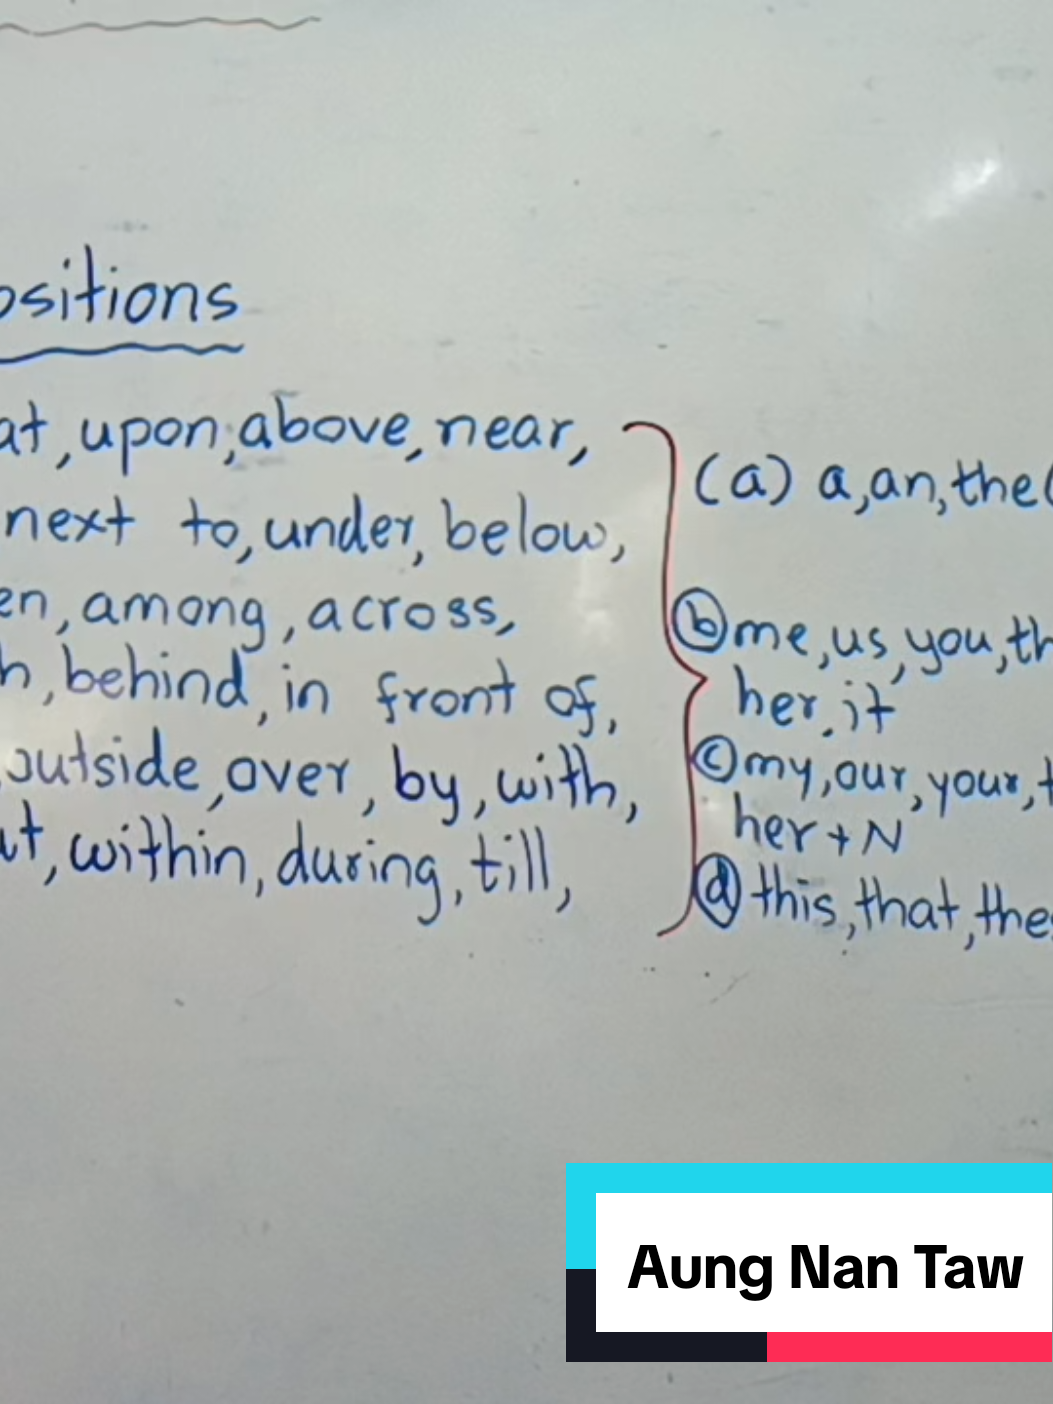 ositions
at, upon, above, near,
next to, under, below,
en, among, across,
h, behind, in front of,
outside, over, by, with,
ut, within, during, till,
(a) a, an, the (
(b) me, us, you, th
her, it
(c) my, our, your, t
her + N
(d) this, that, thes
Aung Nan Taw